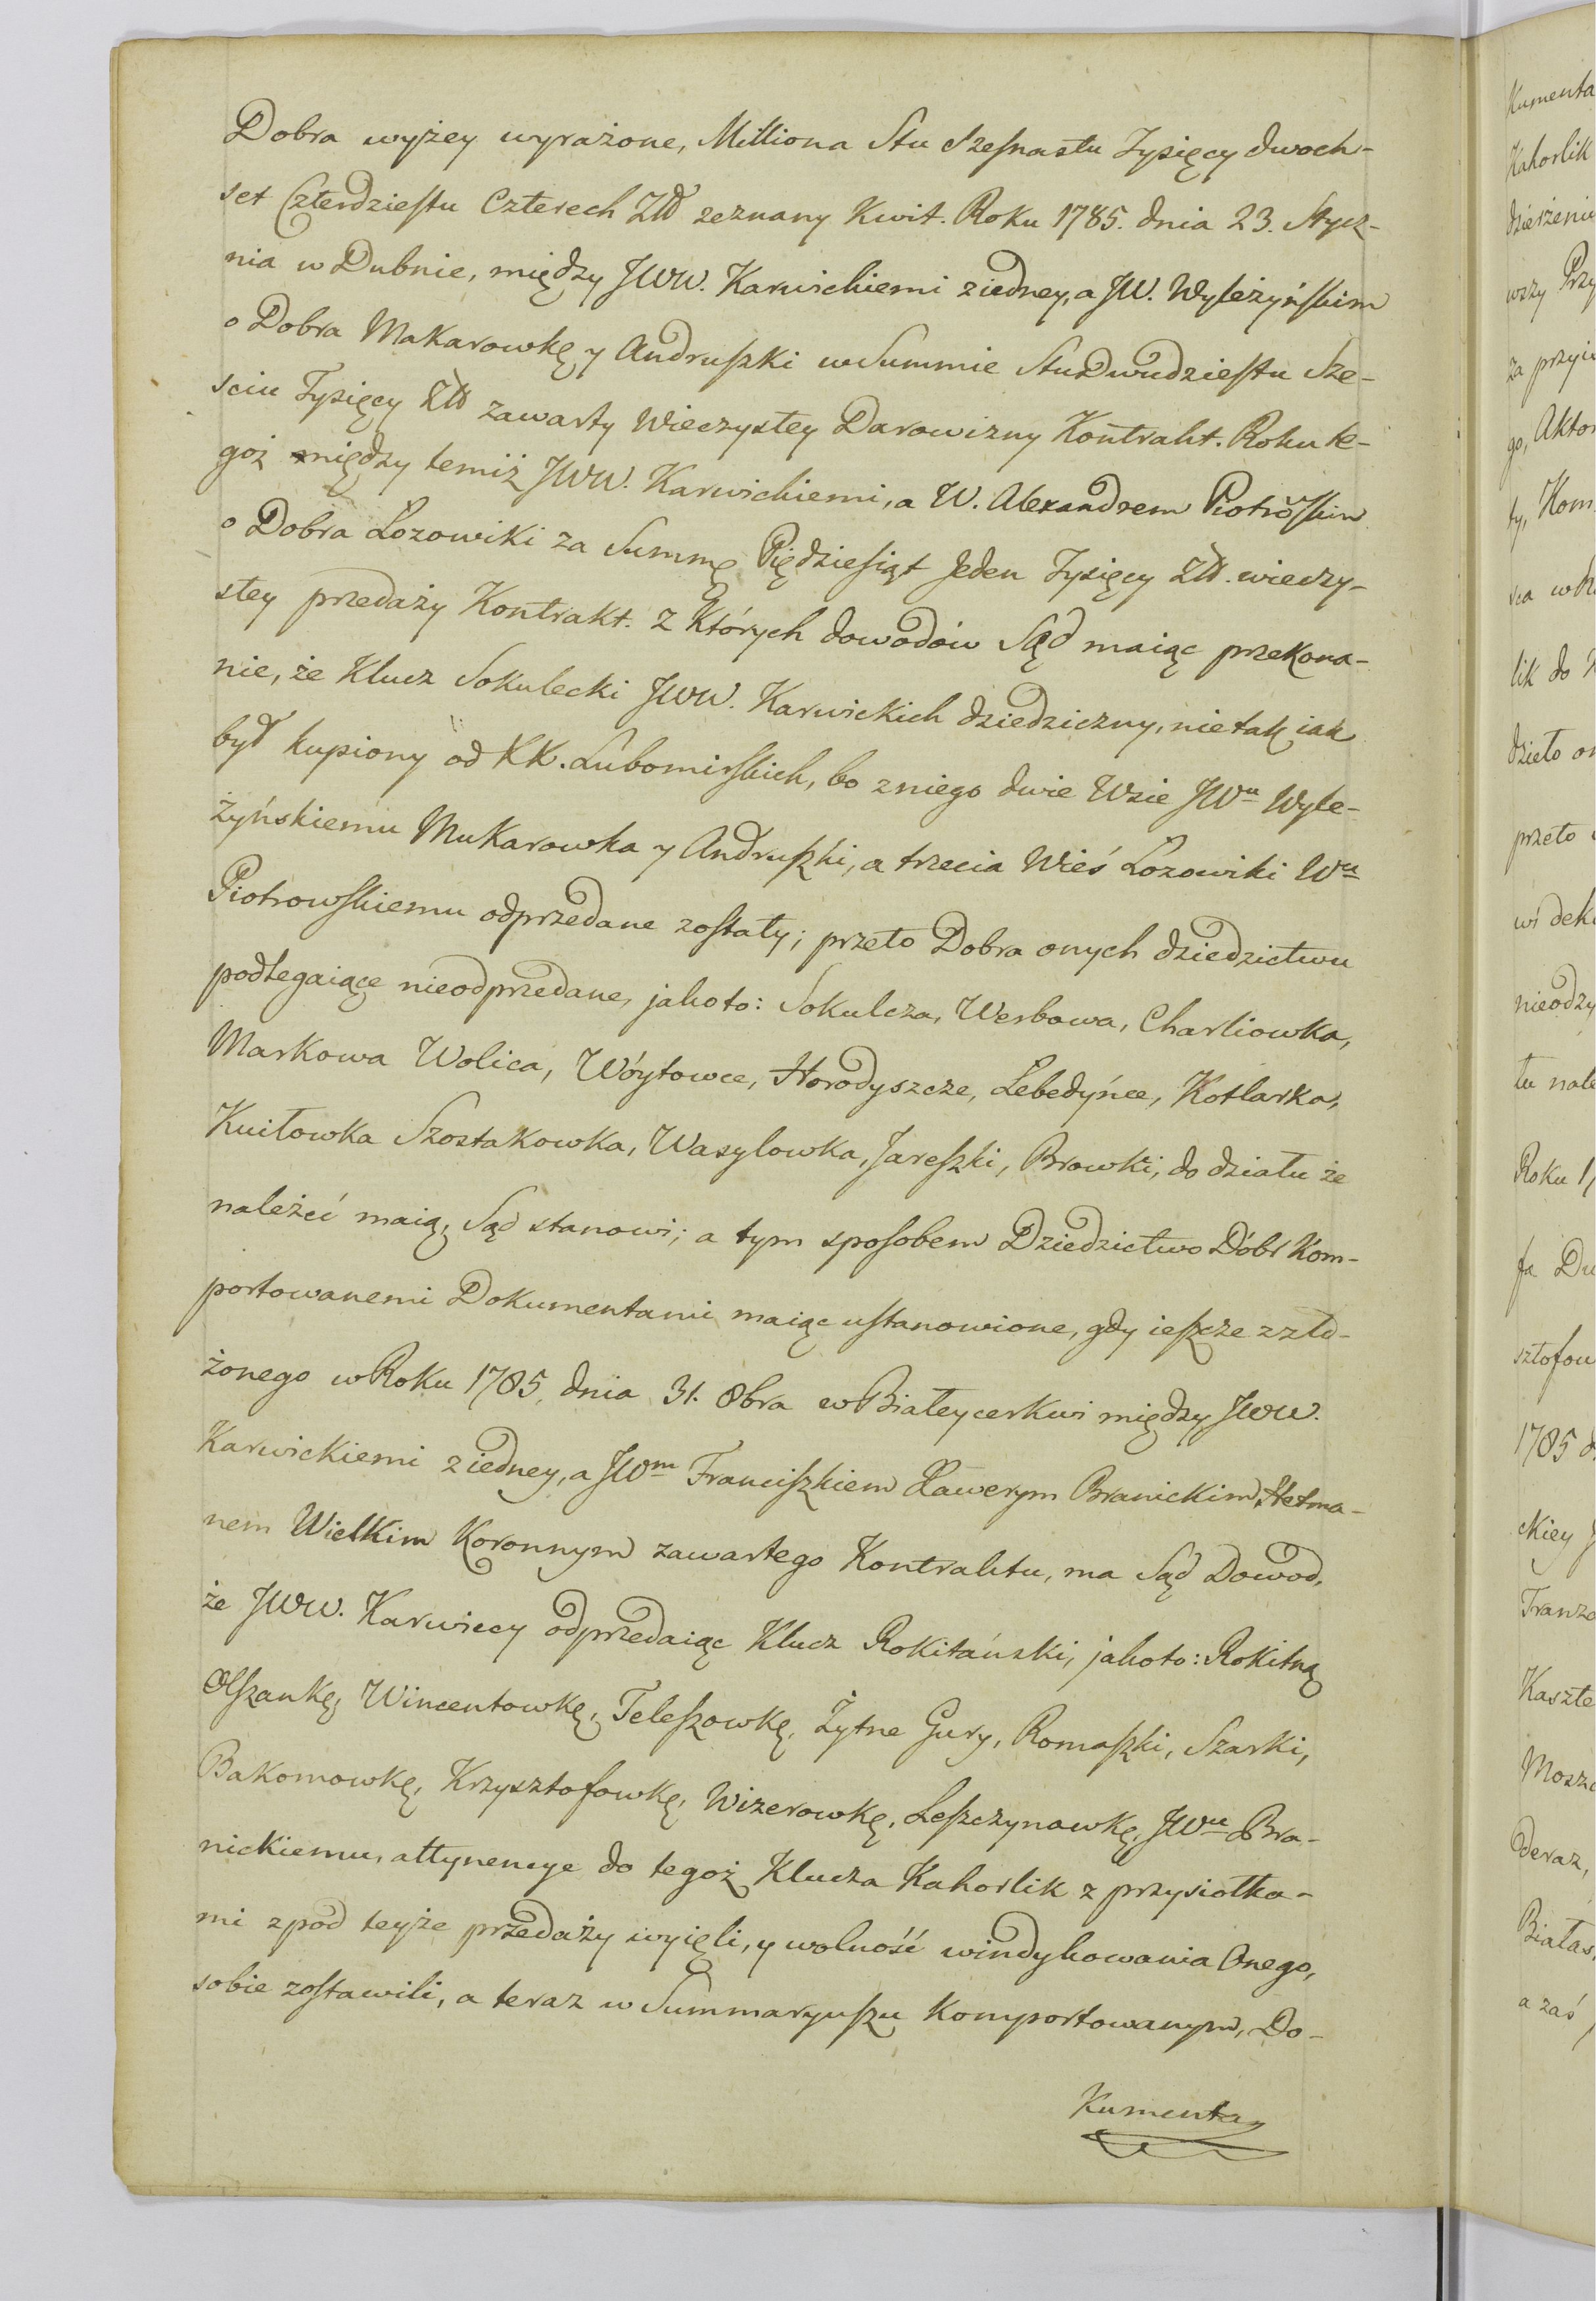 Dobra wyżey wyrażone, Milliona Stu Szesnastu Tysięcy dwoch-
set Czterdziestu Czterech Złł zeznany Kwit. Roku 1785. dnia 23. Stycz-
nia w Dubnie, między JWW. Karwickiemi ziedney, a JW. Wyleżyńskim
o Dobra Makarowkę y Andruszki w Summie Stu Dwudziestu Sze-
sciu Tysięcy Złł zawarty Wieczystey Darowizny Kontrakt. Roku te-
goż między temiż JWW. Karwickiemi, a W. Alexandrem Piotrowskim
o Dobra Lozowiki za Summę Piędziesiąt Jeden Tysięcy Złł. wieczy-
stey przedaży Kontrakt. Z Których dowodów Sąd maiąc przekona-
nie, że Klucz Sokulecki JWW. Karwickich dziedziczny, nie tak iak
był kupiony od XX. Lubomirskich, bo z niego dwie Wsie JWu Wyle-
żyńskiemu Makarowka y Andruszki, a trzecia Wieś Lozowiki Wu
Piotrowskiemu odprzedane zostały; przeto Dobra onych dziedzictwu
podlegaiące nieodprzedane, jakoto: Sokulcza, Werbowa, Charliowka,
Markowa Wolica, Wóytowce, Horodyszcze, Lebedyńce, Kotlarka,
Kuiłowka Szostakowka, Wasylowka, Jareszki, Browki, do działu że
należeć maią, Sąd stanowi; a tym sposobem Dziedzictwo Dóbr Kom-
portowanemi Dokumentami maiąc ustanowione, gdy ieszcze z zło-
żonego w Roku 1785, dnia 31. 8bra w Białeycerkwi między JWW.
Karwickiemi ziedney, a JWm Franciszkiem Xawerym Branickim Hetma-
nem Wielkim Koronnym zawartego Kontraktu, ma Sąd Dowod,
że JWW. Karwiccy odprzedaiąc Klucz Rokitański, jakoto: Rokitną
Olszankę, Wincentowkę, Teleszowkę, Żytne Gury, Romaszki, Szarki,
Bakomowkę, Krzysztofowkę, Wizerowkę, Leszczynawkę, JWu Bra-
nickiemu, attynencye do tegoż Klucza Kahorlik z przysiołka-
mi zpod teyże przedaży wyięli, y wolność windykowania Onego,
sobie zostawili, a teraz w Summaryuszu Komportowanym, Do-
Kumenta
Kumenta
Kahorlik
dzierżenie
wszy Przy
za przyi
go, Aktor
ty, Kom
lik do
dzieło
przeto
nieodzy
tu nale
Roku 1
1785 d
ckiey
Franzo
Kaszte
Moszc
deraz,
Białas
a zaś